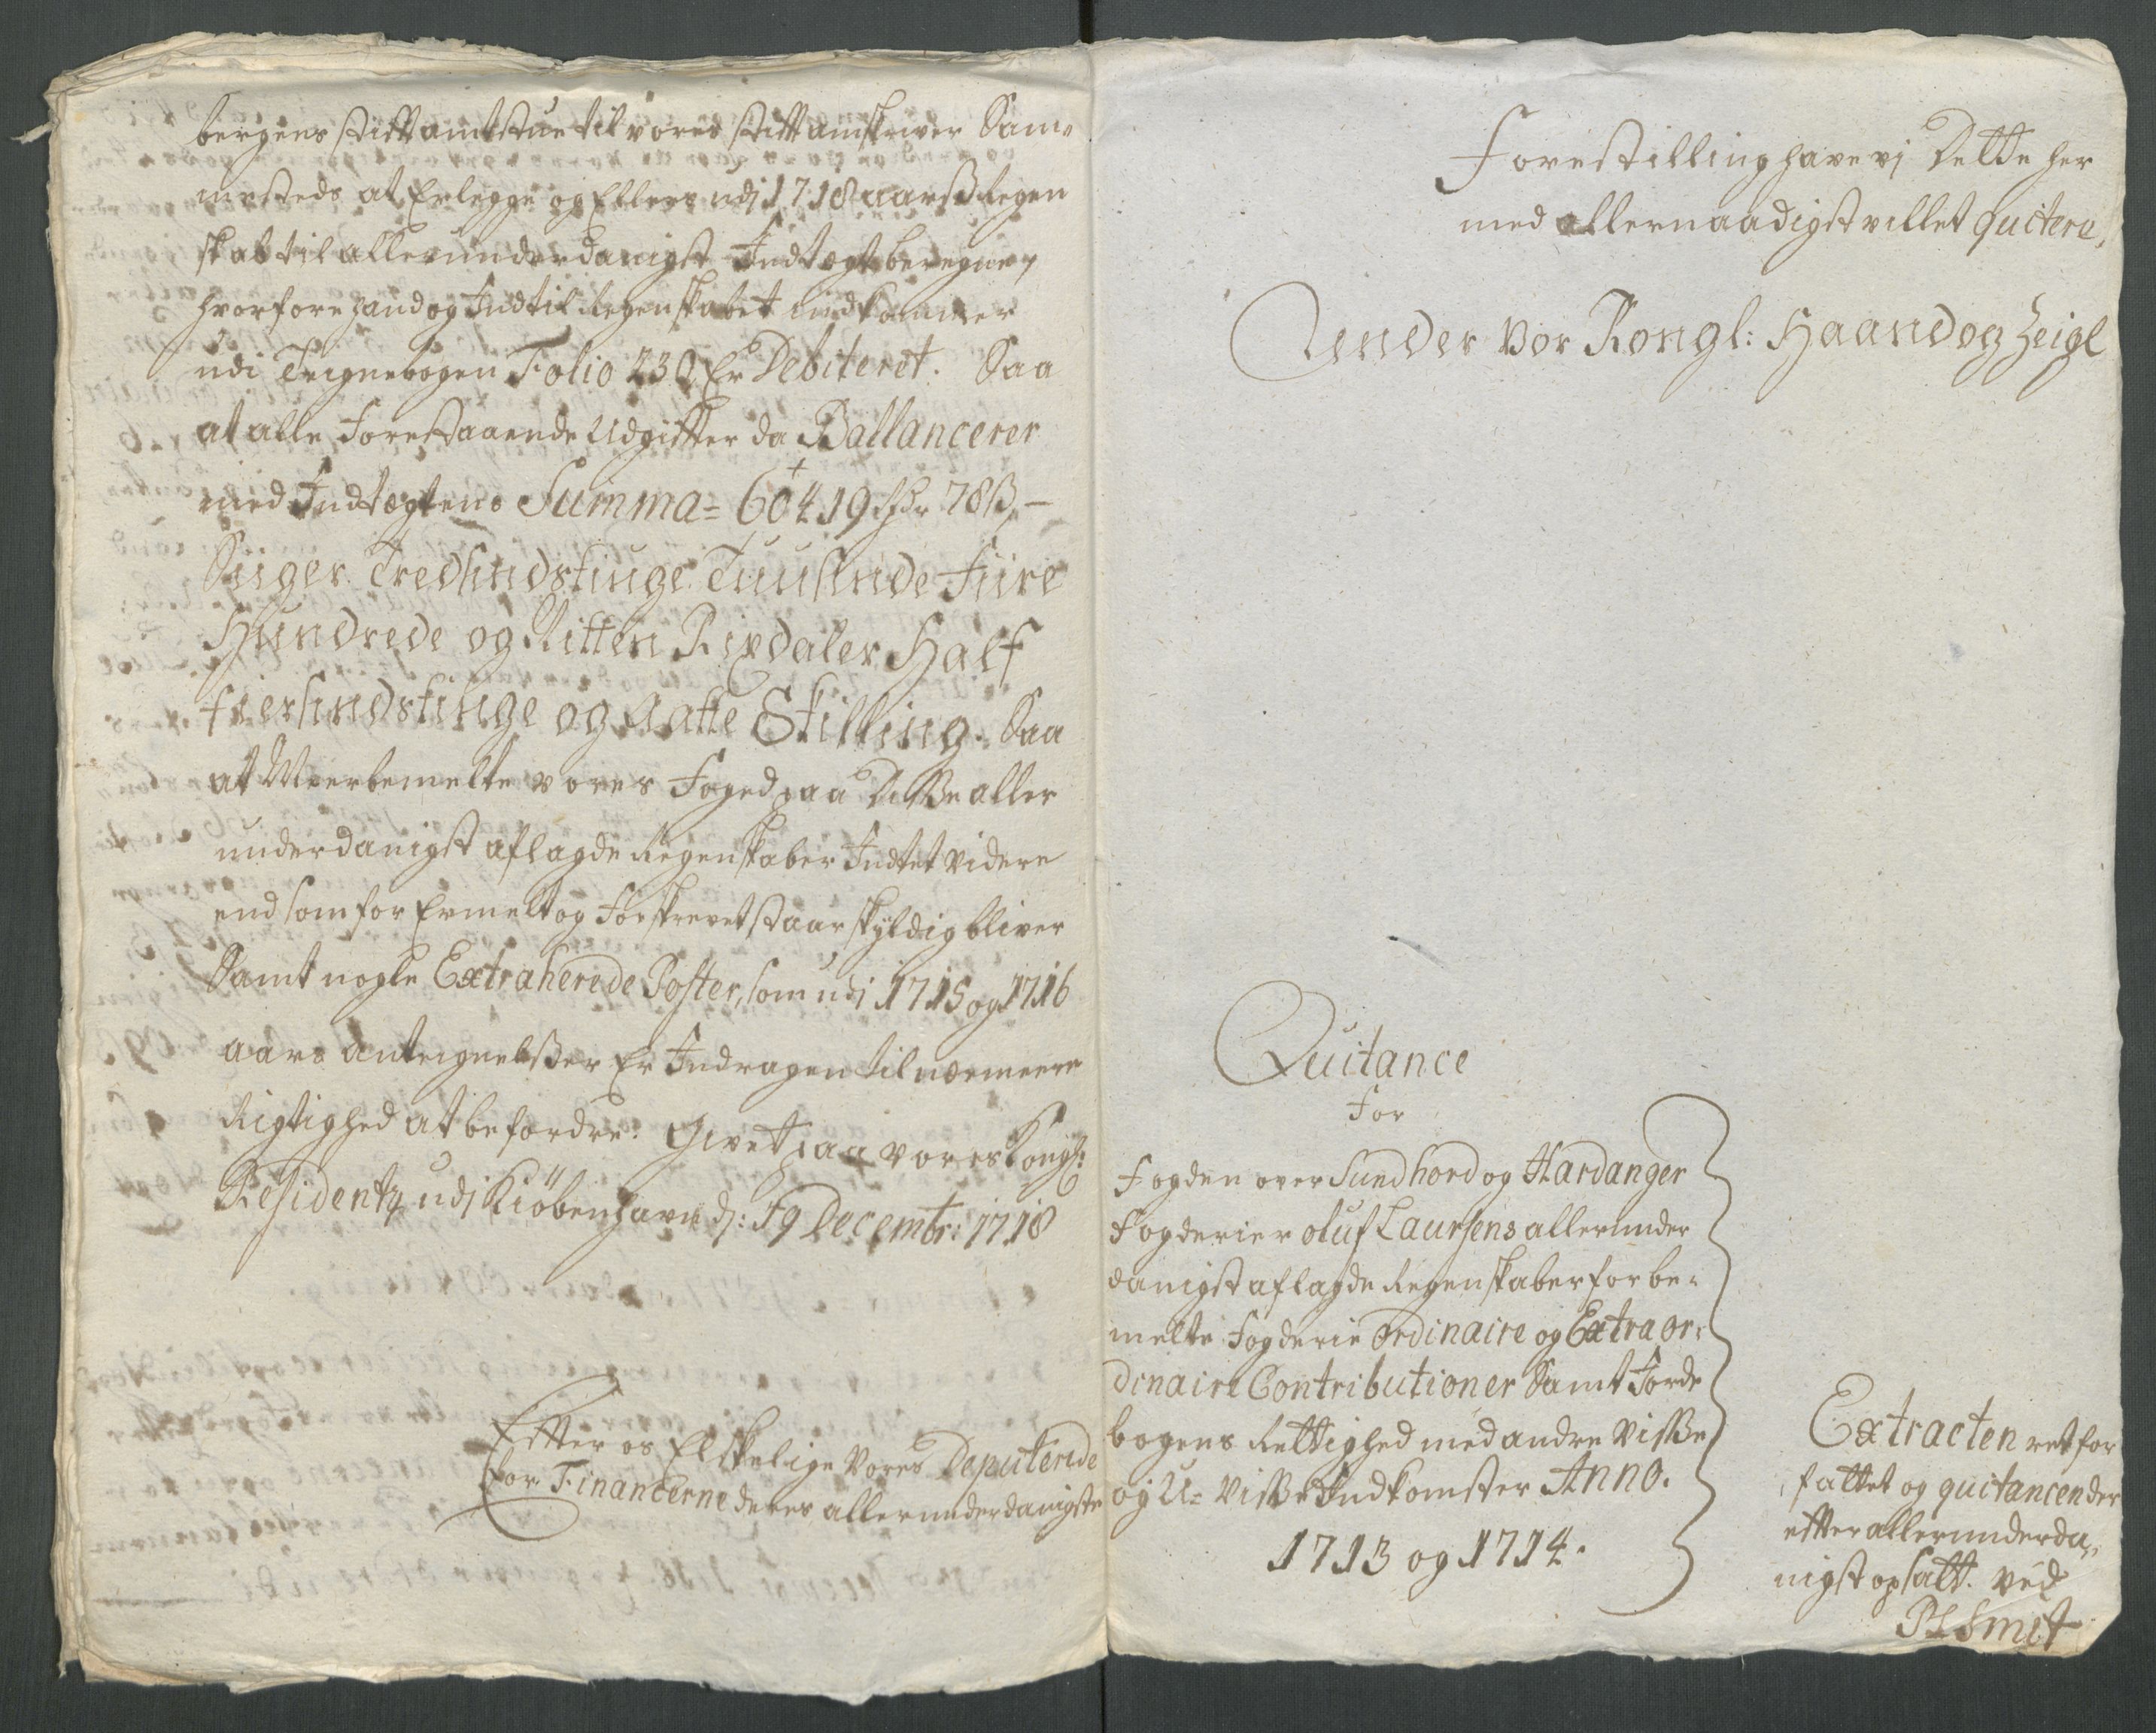 bergens stiftamtstue til vores stiftamskriver Sam=
mesteds at Erlegge og Ellers udj 1718 aars Regen
skab til allerunderdanigst Indtægt beregne,
hvorfore hand og Indtil Regenskabet indkommer
udi Teignebogen Folio 230 Er Debiteret. Saa
at alle Forestaaende Udgifter da Ballancerer
med Indtægtens Summa = 60419 Rdr 78 ß, —
Siiger Tredsindstiuge Tuusinde Fiire
Hundrede og Nitten Rixdaler Half
fiersindstiuge og Aatte Skilling. Saa
at Meerbemelte vores Foged paa Disse aller
underdanigst aflagde Regenskaber Indtet videre
end som for Ermelt og Forskrevet staar skyldig bliver
Samt nogle Extraherede Poster, som udj 1715 og 1716
aars Antegnelsser Er Indragen til nærmeere
Rigtighed at befordre. Givet paa vores Kongl:
Residentz udj Kiöbenhavn d: 19 Decembr: 1718
Efter os Elskelige Vores Deputerede
for Financerne deres allerunderdanigste
Forestilling have vj Dette her
med allernaadigst villet quitere,
Under Vor Kongl: Haand og Zeigl
Quitance
For
Fogden over Sundhord og Hardanger
Fogderier oluf Laursens allerunder
danigst aflagde Regenskaber for be=
melte Fogderie ordinaire og Extraor=
dinaire Contributioner Samt Jorde
bogens Rettighed med andre Visse
og U= Visse Indkomster Anno.
1713 og 1714.
Extracten ret for
fattet og quitancen der
efter allerunderda=
nigst opsatt. Ved
PSSmit